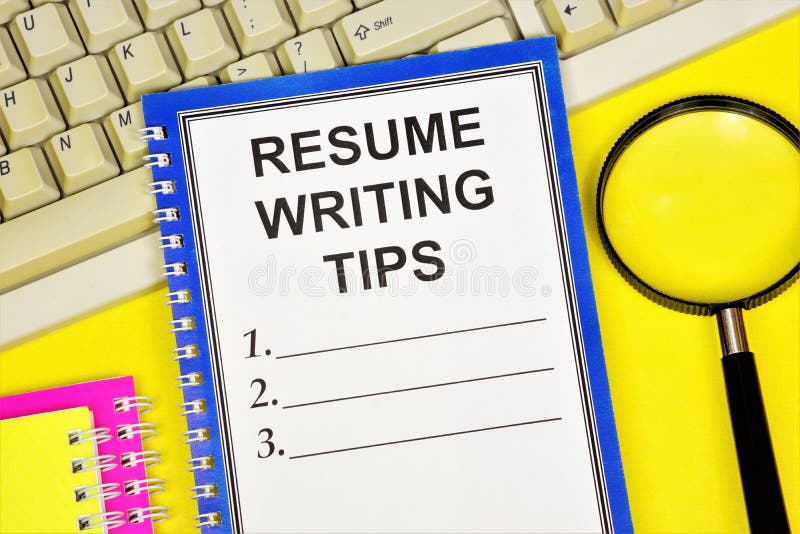 U I O P
H J K L : ; " '
B N M < , > . ? / Shift
RESUME
WRITING
TIPS
dreamstime
1.
2.
3.